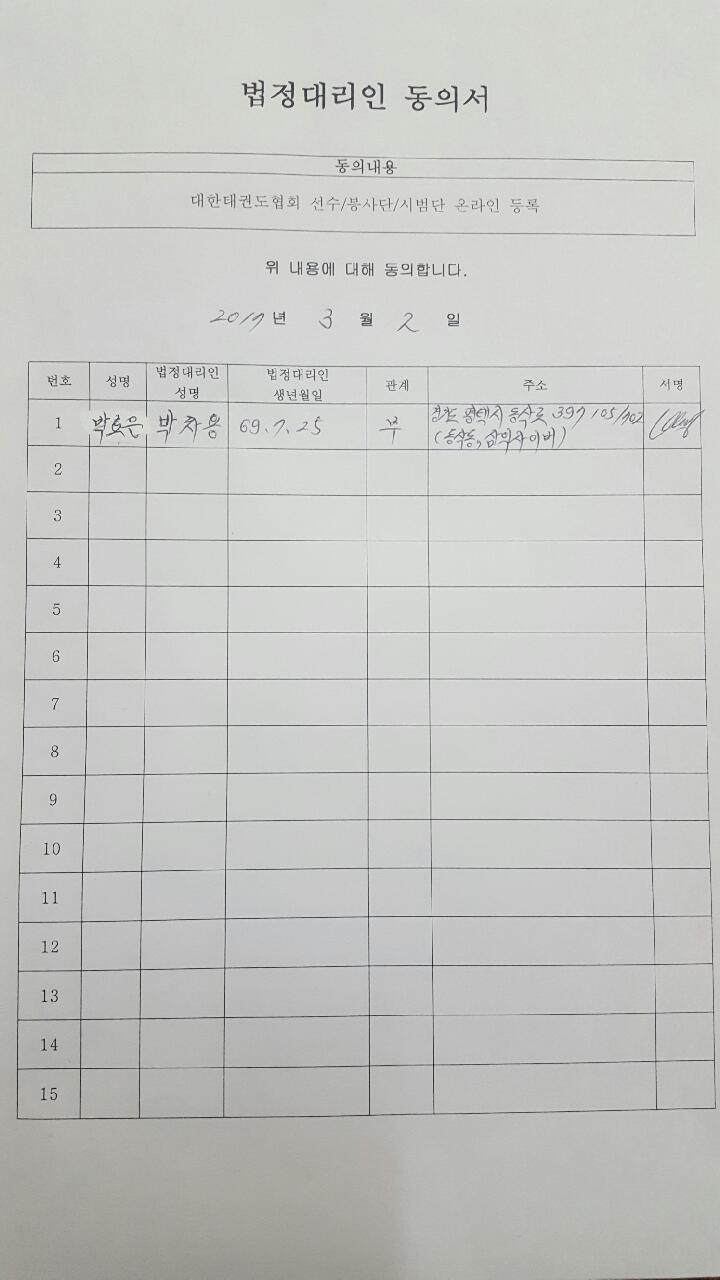 법정대리인 동의서
동의내용
대한태권도협회 선수/봉사단/시범단 온라인 등록
위 내용에 대해 동의합니다.
2017년 3 월 2 일
번호 성명 법정대리인 성명 법정대리인 생년월일 관계 주소 서명
1 박효은 박차용 69.7.25 부 평택시 동삭로 397 105/702
(동삭동, 삼익사이버)
2
3
4
5
6
7
8
9
10
11
12
13
14
15